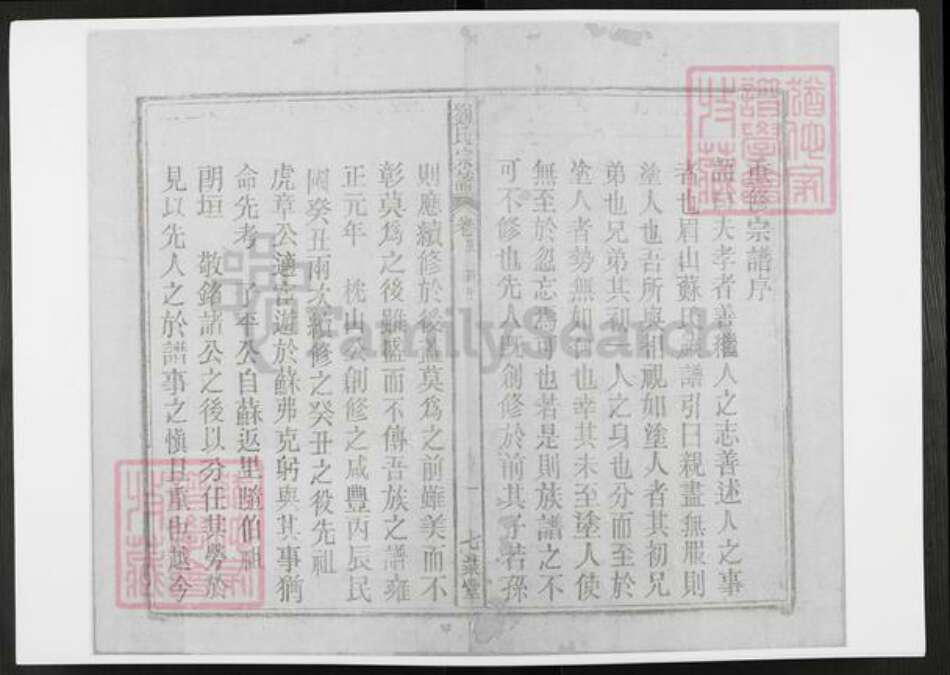 重修宗譜序
謂曰夫孝者善繼人之志善述人之事
者也眉山蘇氏族譜引曰親盡無服則
塗人也吾所與相視如塗人者其初兄
弟也兄弟其初一人之身也分而至於
塗人者勢無如何也幸其未至塗人使
無至於忽忘焉可也若是則族譜之不
可不修也先人既創修於前其子若孫
劉氏宗譜
卷五
一
七業堂
則應續修於後蓋莫為之前雖美而不
彰莫為之後雖盛而不傳吾族之譜雍
正元年 枕山公創修之咸豐丙辰民
國癸丑兩次續修之癸丑之役先祖
虎章公適宦遊於蘇弗克躬與其事猶
命先考 子平公自蘇返里隨伯祖
朗垣 敬銘諸公之後以分任其勞於
見以先人之於譜事之慎且重也越今
猶他家
譜學會
收藏
FamilySearch